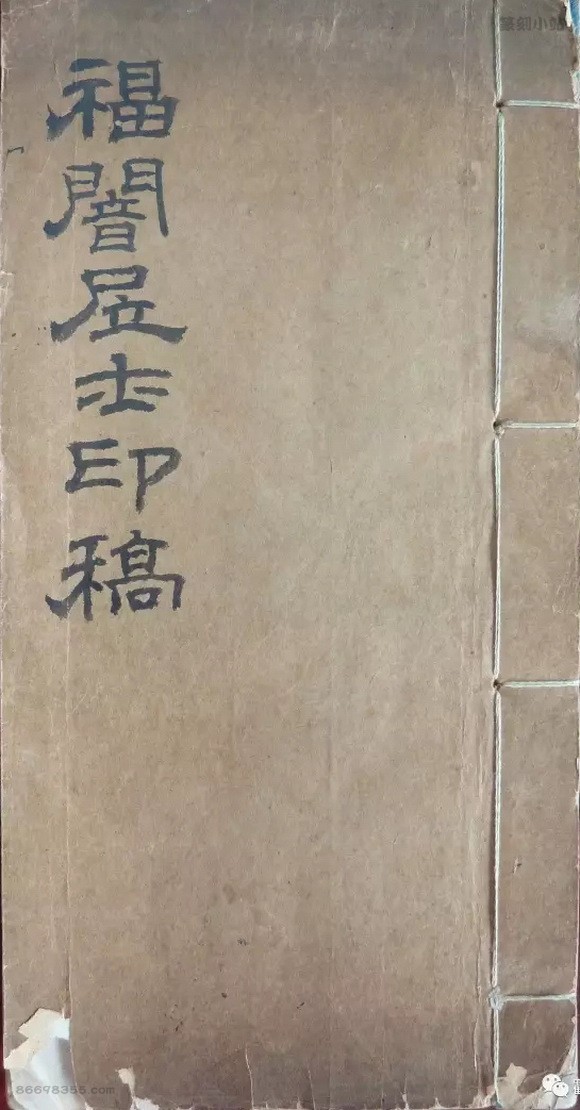 福闇居士印稿
篆刻小站
86698355.com